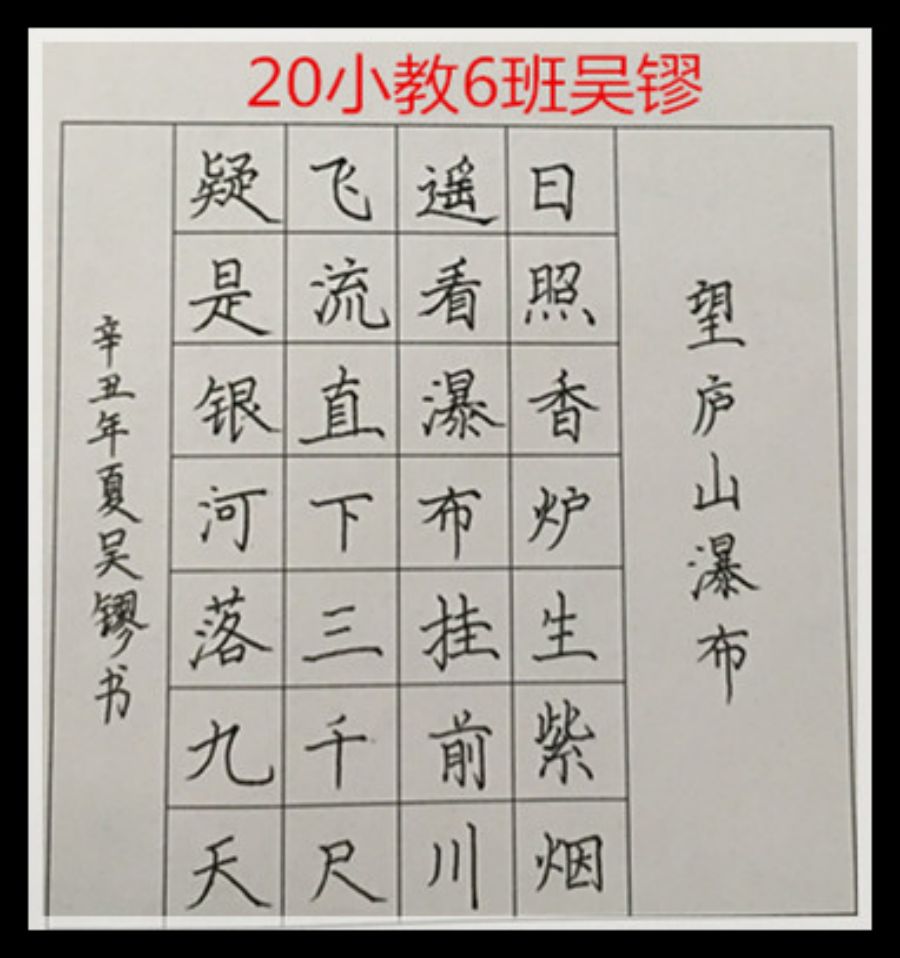 20小教6班吴镠
望庐山瀑布
日照香炉生紫烟
遥看瀑布挂前川
飞流直下三千尺
疑是银河落九天
辛丑年夏吴镠书